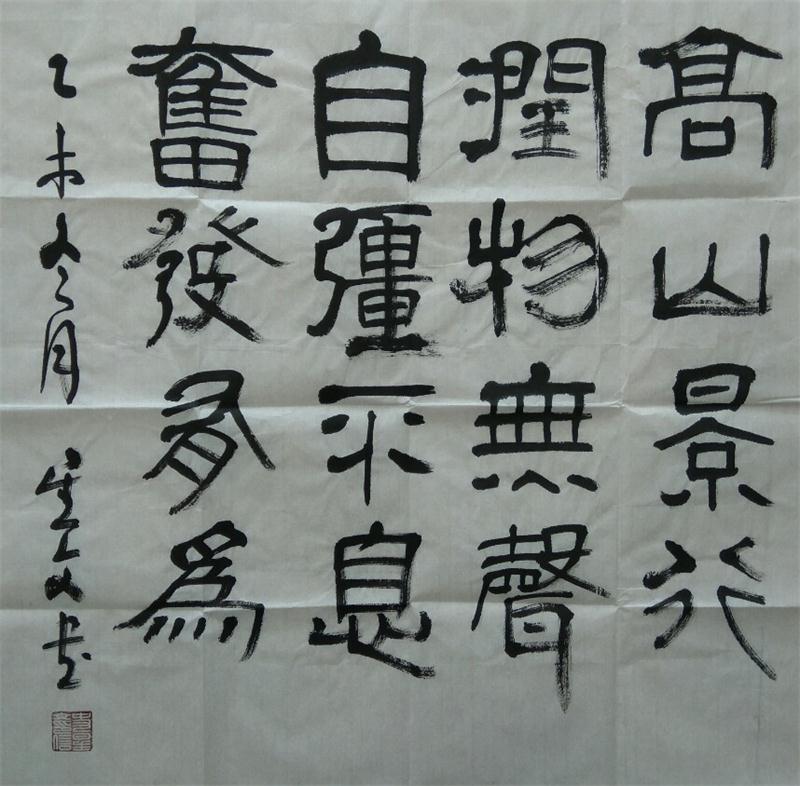 高山景行
潤物無聲
自彊不息
奮發有爲
乙未冬月 文书